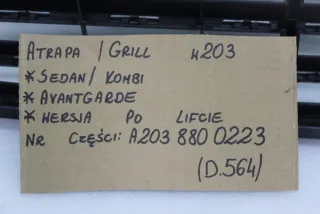 ATRAPA / GRILL W203
* SEDAN / KOMBI
* AVANTGARDE
* WERSJA PO LIFCIE
NR CZĘŚCI: A203 880 0223
(D.564)